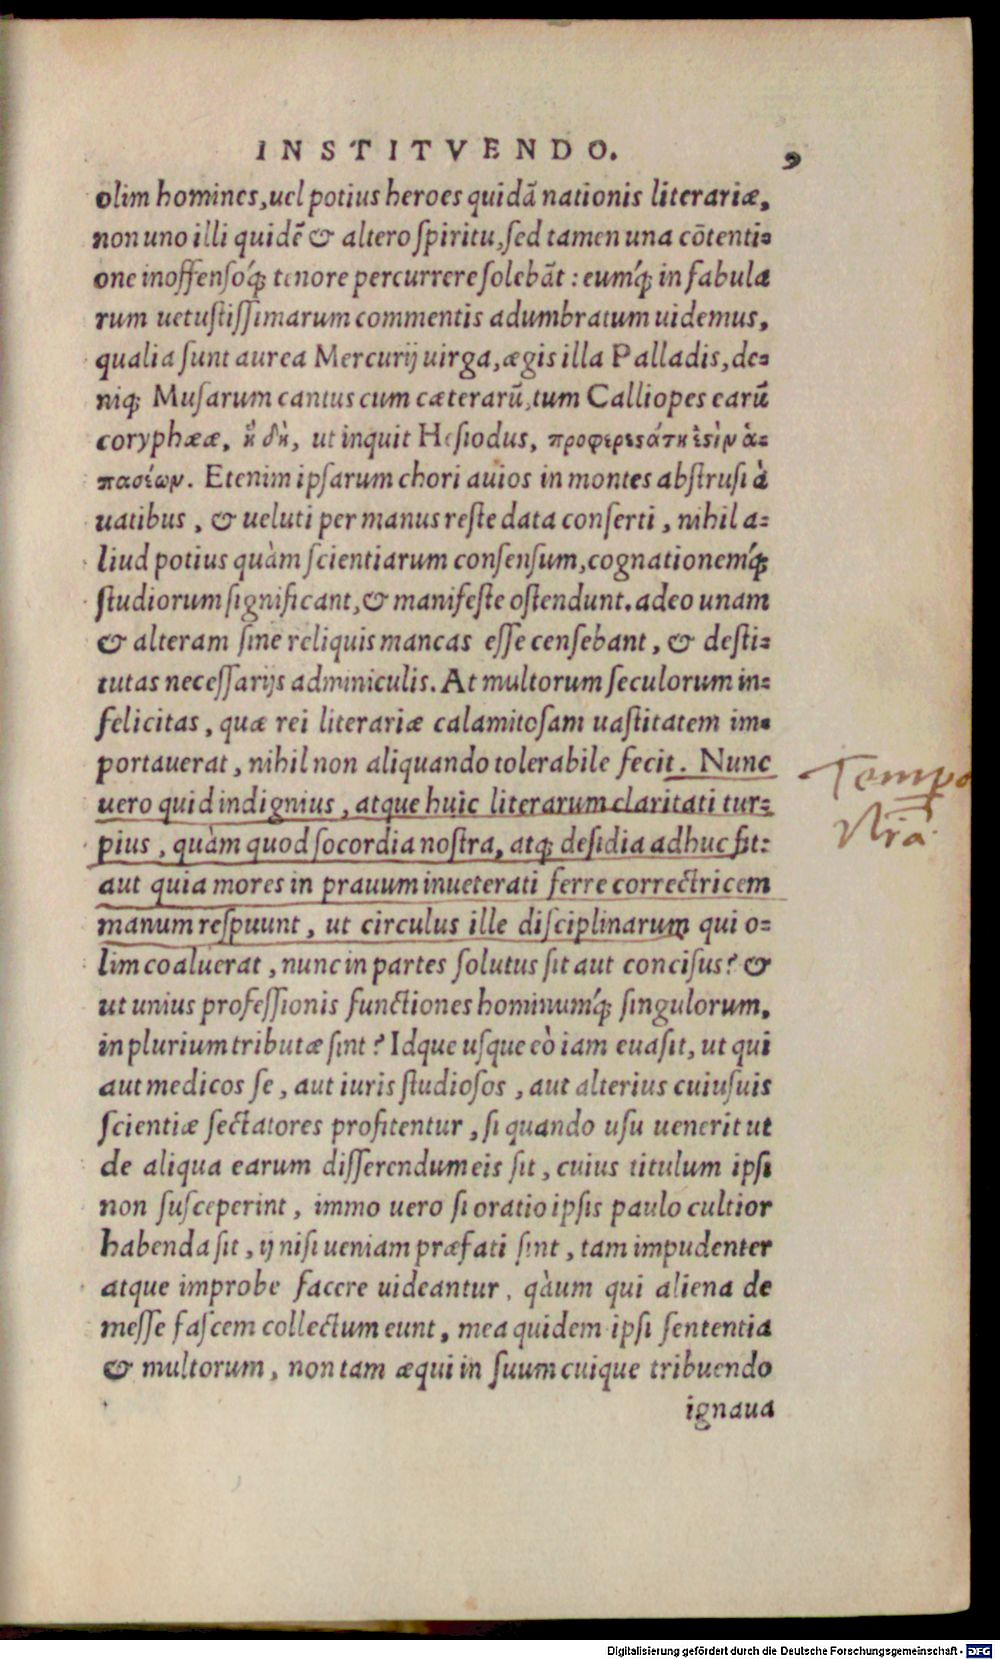 INSTITVENDO. 9
olim homines, uel potius heroes quidā nationis literariæ,
non uno illi quidē & altero ſpiritu, ſed tamen una cōtenti-
one inoffenſóq; tenore percurrere ſolebāt: eumq́; in fabula
rum uetuſtiſſimarum commentis adumbratum uidemus,
qualia ſunt aurea Mercurij uirga, ægis illa Palladis, de-
niq; Muſarum cantus cum cæterarū, tum Calliopes earū
coryphææ, ἣ δὴ, ut inquit Heſiodus, προφερεστάτη ἐστὶν ἁ-
πασέων. Etenim ipſarum chori auios in montes abſtruſi à
uatibus, & ueluti per manus reſte data conſerti, nihil a-
liud potius quàm ſcientiarum conſenſum, cognationemq́;
ſtudiorum ſignificant, & manifeſte oſtendunt. adeo unam
& alteram ſine reliquis mancas eſſe cenſebant, & deſti-
tutas neceſſarijs adminiculis. At multorum ſeculorum in-
felicitas, quæ rei literariæ calamitoſam uaſtitatem im-
portauerat, nihil non aliquando tolerabile fecit. Nunc
uero quid indignius, atque huic literarum claritati tur-
pius, quàm quod ſocordia noſtra, atq; deſidia adhuc fit:
aut quia mores in prauum inueterati ferre correctricem
manum reſpuunt, ut circulus ille diſciplinarum qui o-
lim coaluerat, nunc in partes ſolutus ſit aut conciſus? &
ut unius profeſſionis functiones hominumq́; ſingulorum,
in plurium tributæ ſint? Idque uſque eò iam euaſit, ut qui
aut medicos ſe, aut iuris ſtudioſos, aut alterius cuiuſuis
ſcientiæ ſectatores profitentur, ſi quando uſu uenerit ut
de aliqua earum diſſerendum eis ſit, cuius titulum ipſi
non ſuſceperint, immo uero ſi oratio ipſis paulo cultior
habenda ſit, ij niſi ueniam præfati ſint, tam impudenter
atque improbe facere uideantur, qàuum qui aliena de
meſſe faſcem collectum eunt, mea quidem ipſi ſententia
& multorum, non tam æqui in ſuum cuique tribuendo
ignaua
Tempo
Nrā
Digitalisierung gefördert durch die Deutsche Forschungsgemeinschaft - DFG